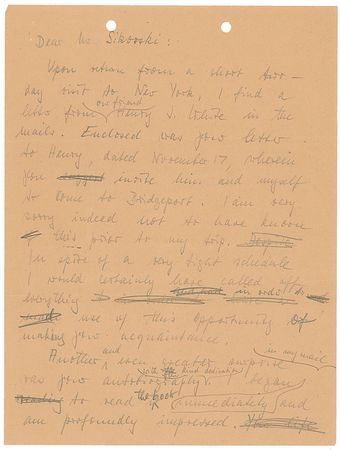 Dear Mr Sikorski:
Upon return from a short two-
day visit to New York, I find a
letter from our friend Henry J. White in the
mails. Enclosed was your letter
to Henry, dated November 17, wherein
you invite him and myself
to come to Bridgeport. I am very
sorry indeed not to have known
this prior to my trip.
In spite of a very tight schedule
would certainly have called off
everything in order to
use of this opportunity of
making your acquaintance.
Another and even greater surprise in my mail
was your autobiography with kind dedication. I began
to read the book immediately and
am profoundly impressed.